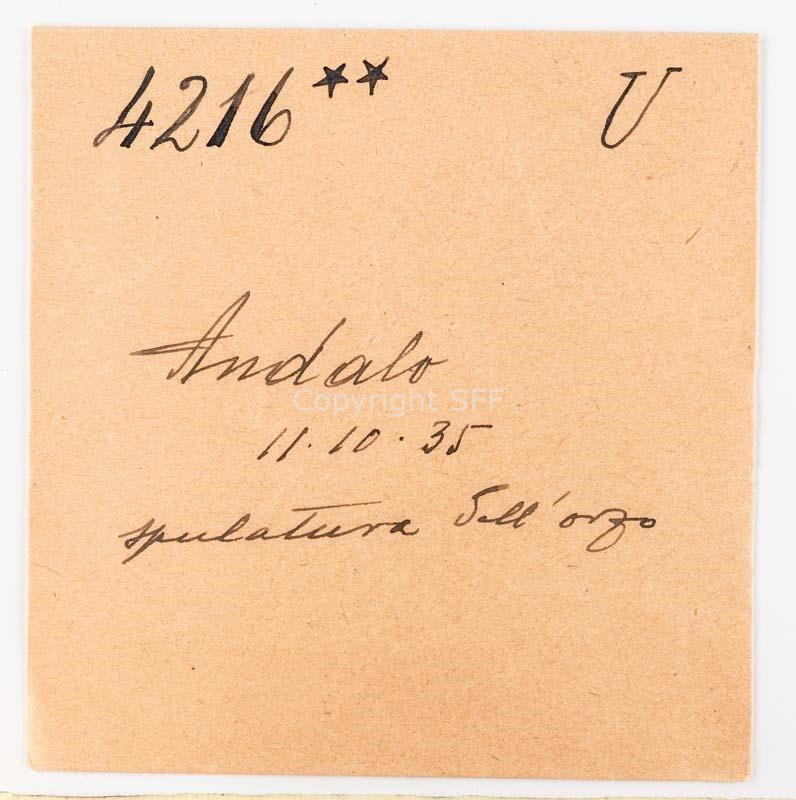 4216** U
Andalo
Copyright SFF
11.10.35
spulatura dell'orzo